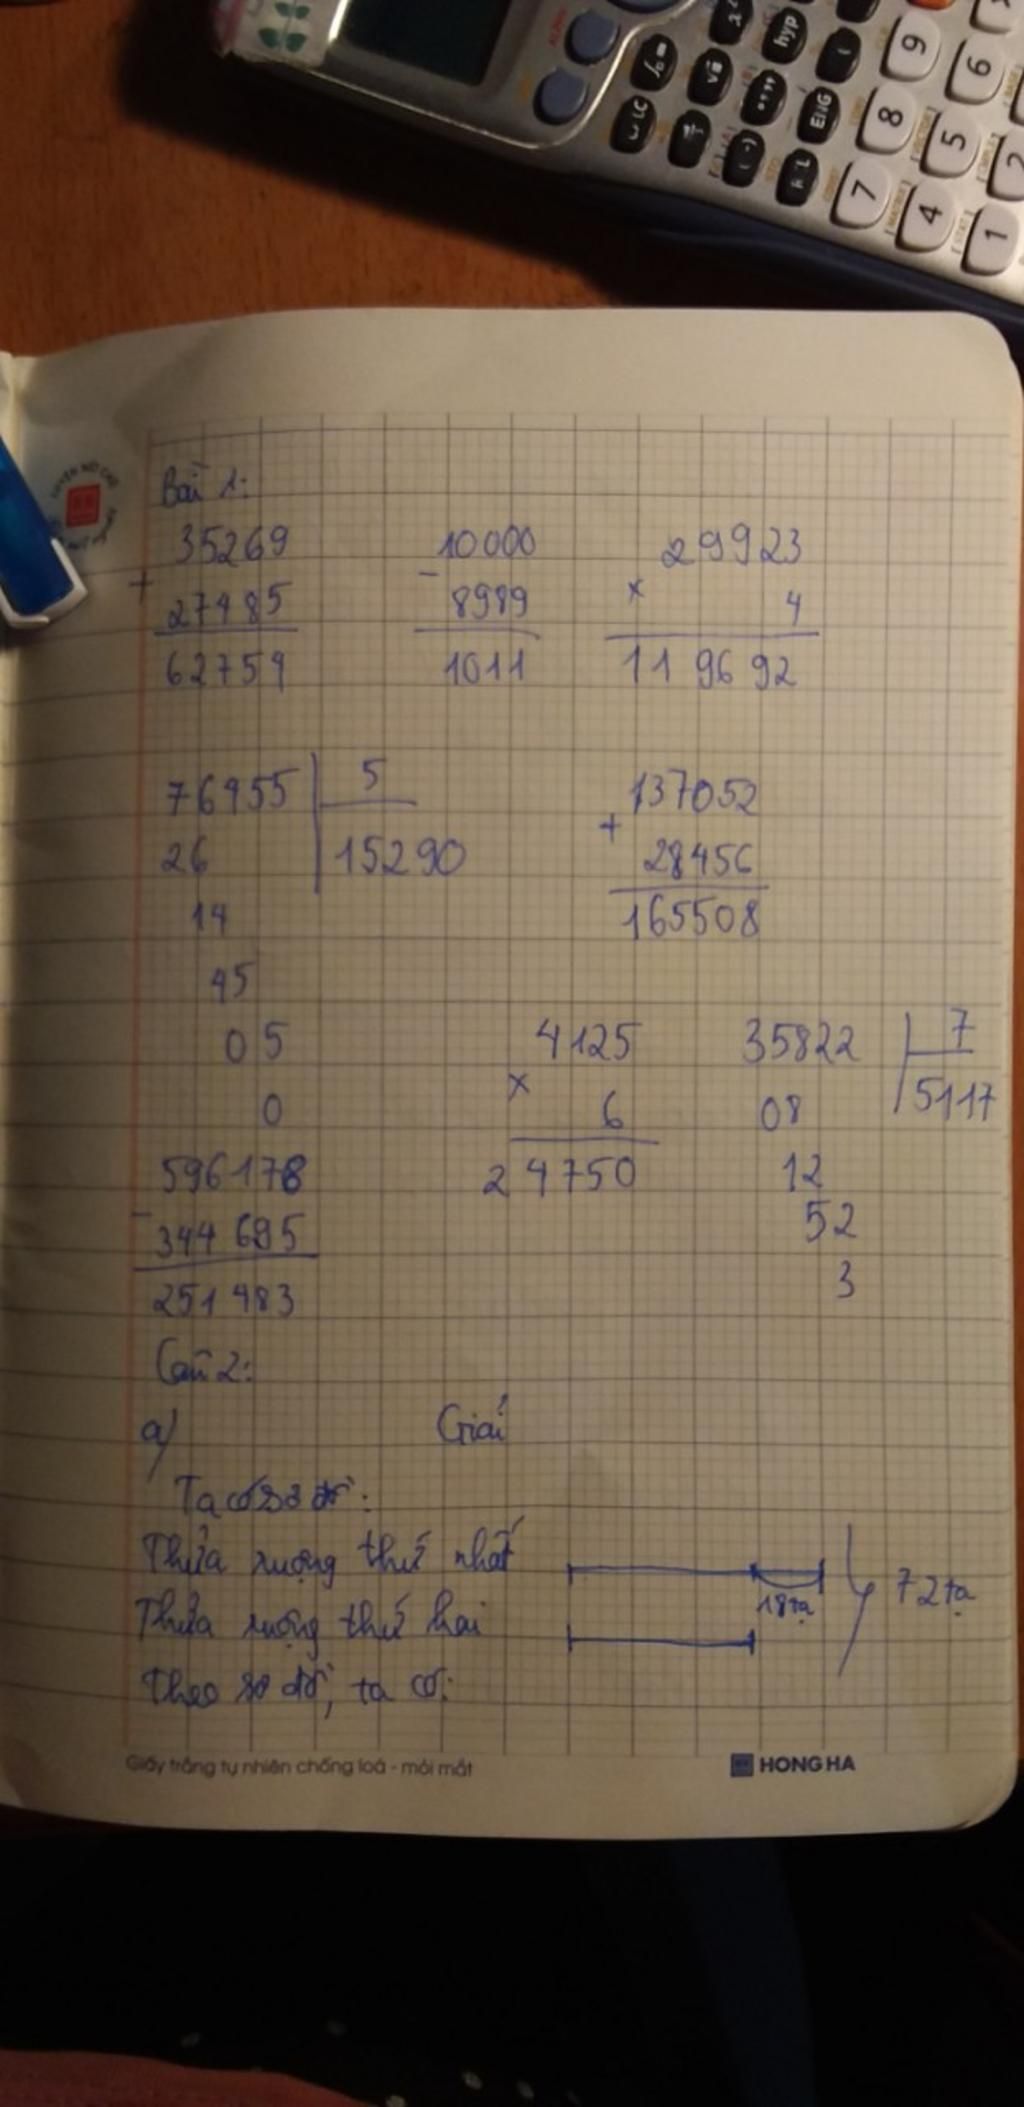 Bài 1:
35269
+
27485
62759
10000
-
8989
1011
29923
×
4
119692
76955
5
26
15290
14
45
05
0
137052
+
28456
165508
4125
×
6
24750
35822
7
08
5117
12
52
3
596178
-
344695
251483
Câu 2:
a)
Giải
Ta có sơ đồ:
Thửa ruộng thứ nhất
18 tạ
72 tạ
Thửa ruộng thứ hai
Theo sơ đồ, ta có:
Giấy trắng tự nhiên chống loá - mỏi mắt
HONG HA
hyp
ENG
7
8
9
4
5
6
1
2